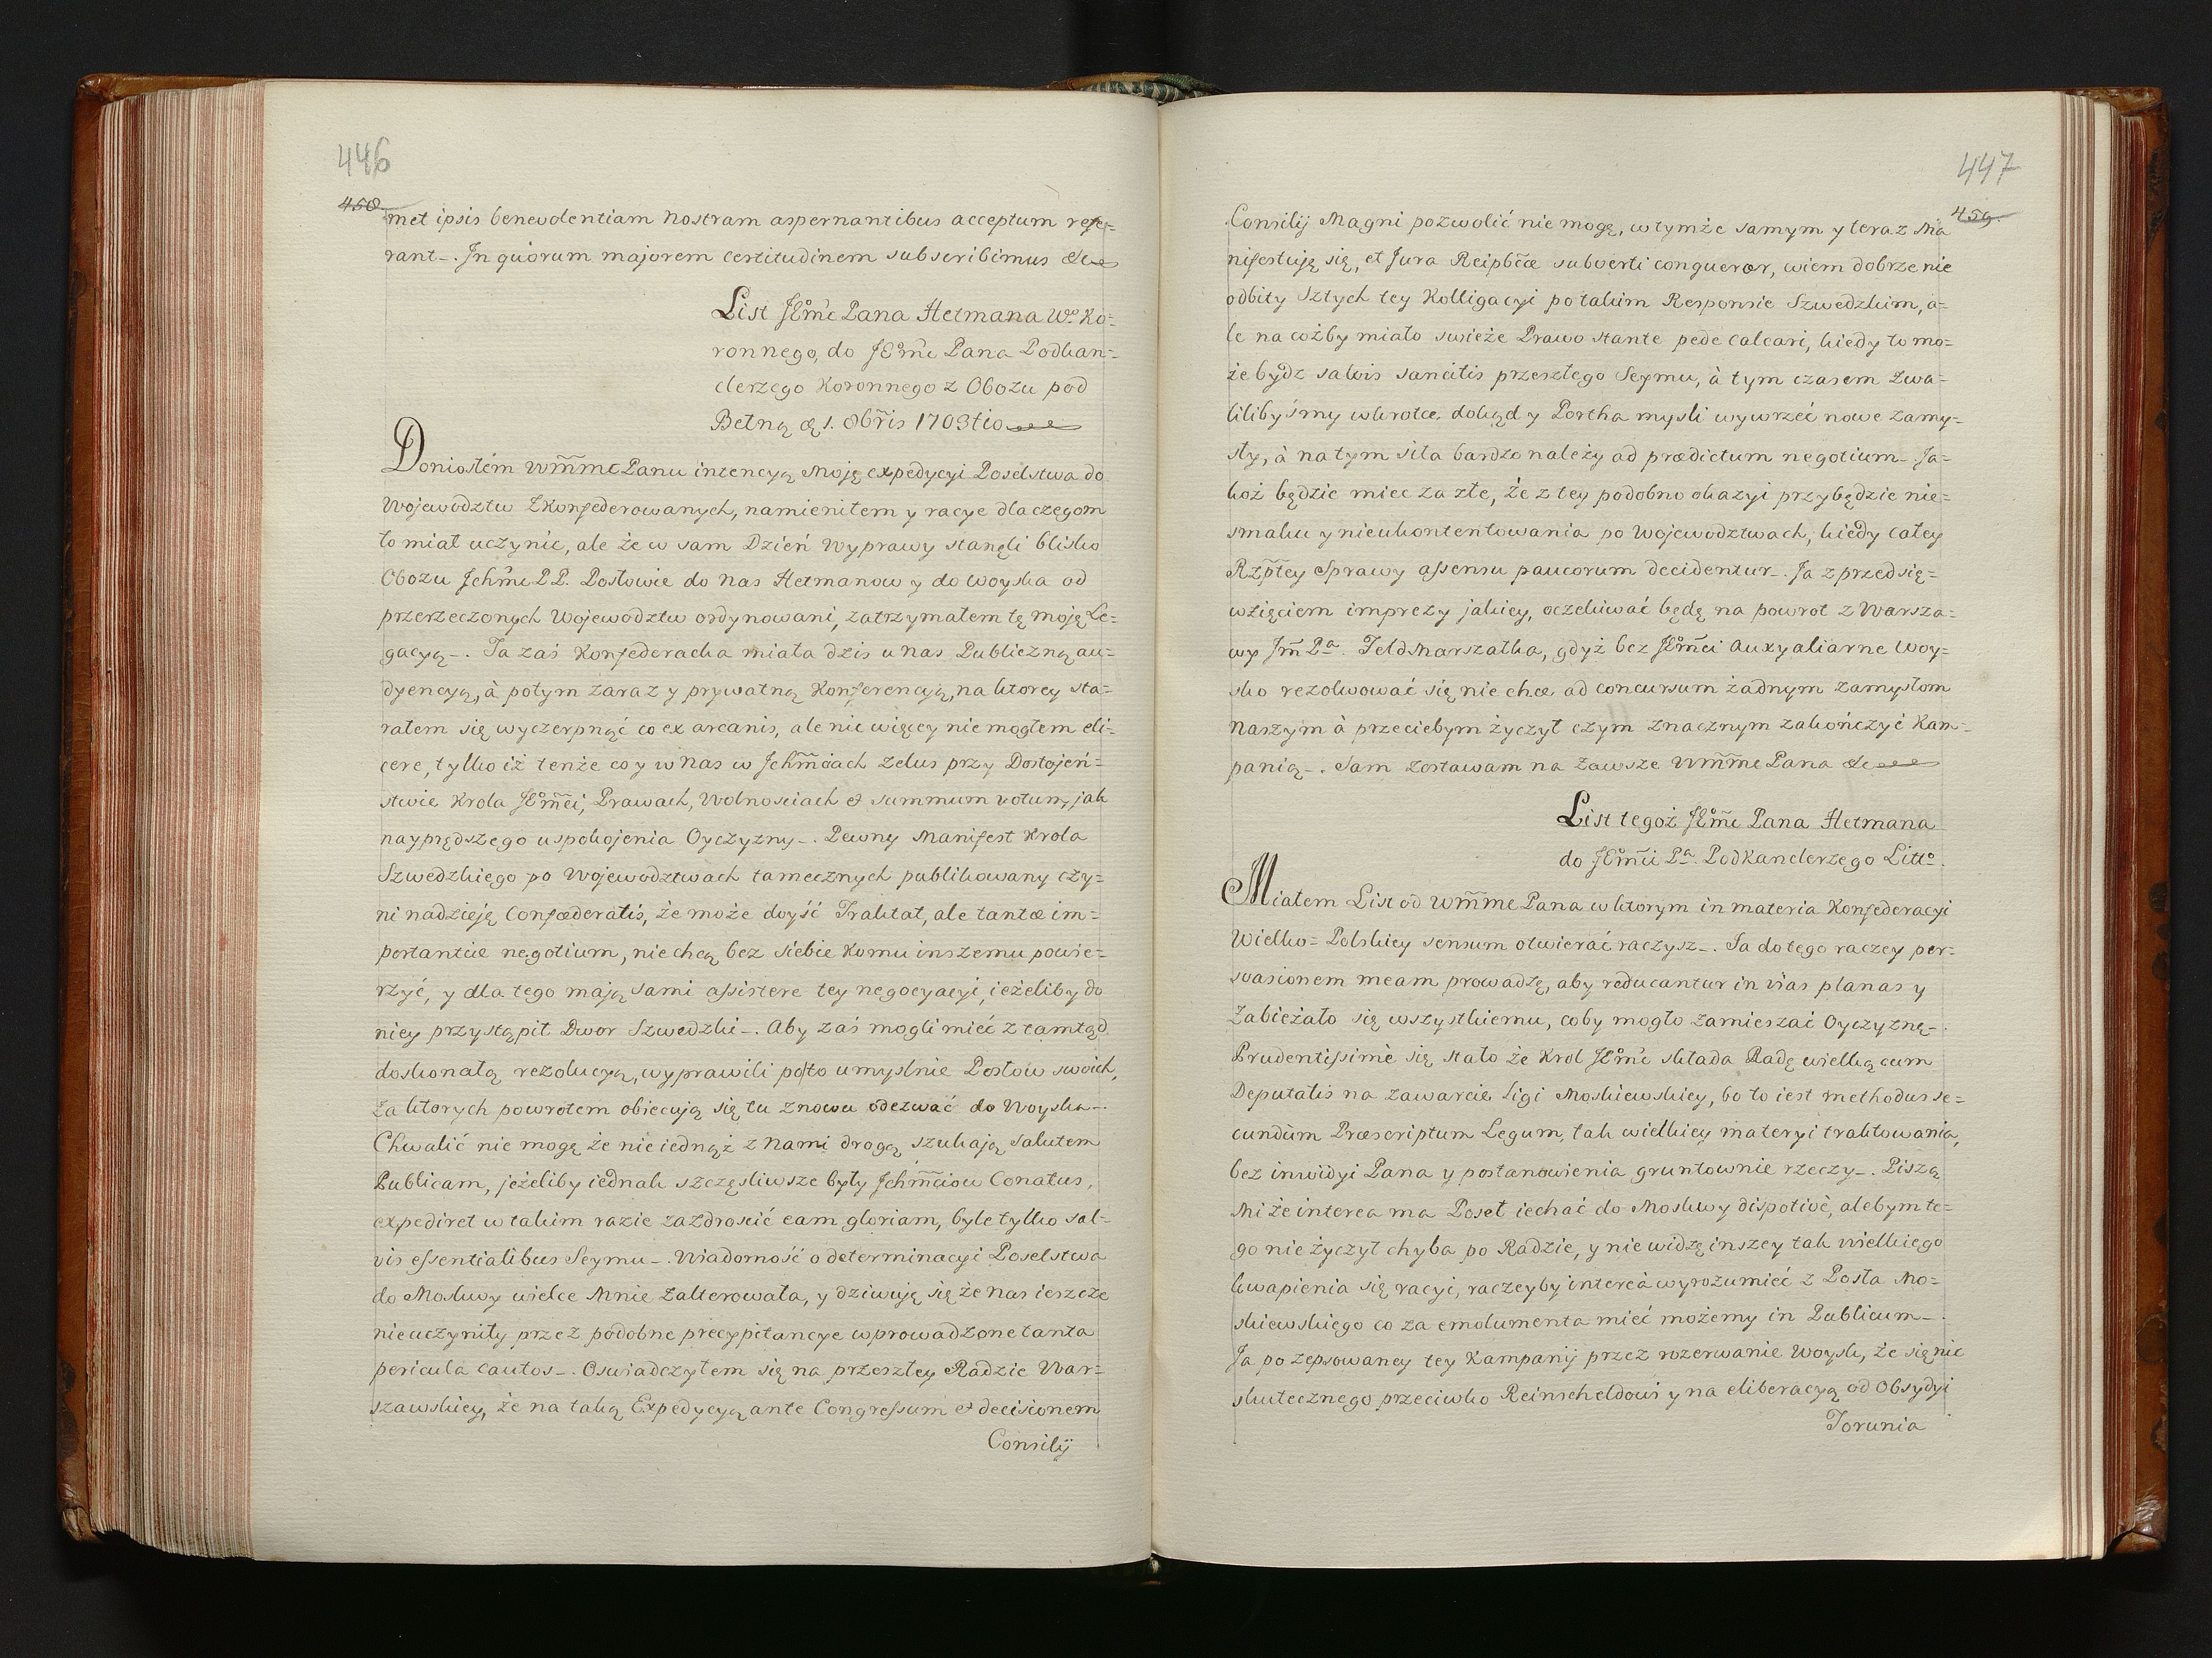 446
458.
met ipsis benevolentiam nostram aspernantibus acceptum refe=
rant_. In quorum majorem certitudinem subscribimus &c
List JEm̃c Pana Hetmana Wo. Ko=
ronnego, do JEm̃c Pana Podkan=
clerzego Koronnego z Obozu pod
Betną d. 1. 8br̃is 1703tio
Doniosłem Wm̃mc Panu intencyą moję expedycyi Poselstwa do
Wojewodztw Zkonfederowanych, namieniłem y racye dla czegom
to miał uczynic, ale że w sam Dzień Wyprawy stanęli blisko
Obozu Jchm̃c PP. Posłowie do nas Hetmanow y do woyska od
przerzeczonych Wojewodztw ordynowani, zatrzymałem tę moję Le=
gacyą_. Ta zaś Konfederacka miała dzis u nas Publiczną au=
dyencyą, à potym zaraz y prywatną Konferencyą, na ktorey sta=
rałem się wyczerpnąć co ex arcanis, ale nic więcey nie mogłem eli=
cere, tylko iż tenże co y w nas w Jchm̃ciach zelus przy Dostojeń=
stwie Krola JEm̃ci, Prawach, Wolnosciach & summum votum, jak
nayprędszego uspokojenia Oyczyzny_. Pewny Manifest Krola
Szwedzkiego po Wojewodztwach tamecznych publikowany czy=
ni nadzieję Confæderatis, że może doyść Traktat, ale tantæ im=
portantiæ negotium, nie chcą bez siebie komu inszemu powie=
rzyć, y dla tego mają sami assistere tey negocyacyi, ieżeliby do
niey przystąpił Dwor Szwedzki_. Aby zaś mogli mieć z tamtąd
doskonałą rezolucyą, wyprawili po to umyslnie Posłow swoich,
za ktorych powrotem obiecują się tu znowu odezwać do Woyska_.
Chwalić nie mogę że nie iednąż z nami drogą szukają salutem
Publicam, jeżeliby iednak szczęsliwsze były Jchm̃ciow Conatus,
expediret w takim razie zazdroscić eam gloriam, byle tylko sal=
vis essentialibus Seymu_. Wiadomość o determinacyi Poselstwa
do Moskwy wielce mnie zalterowała, y dziwuję się że nas ieszcze
nieuczyniły przez podobne precypitancye wprowadzone tanta
pericula cautos_. Oswiadczyłem się na przeszłey Radzie War=
szawskiey, że na taką Expedycyą ante Congressum & decisionem
Consilij
447
459.
Consilij Magni pozwolić nie mogę, w tymże samym y teraz Ma
nifestuję się, et Jura Reipb̃cæ subverti conqueror, wiem dobrze nie
odbity Sztych tey Kolligacyi po takim Responsie Szwedzkim, a=
le na cożby miało swieże Prawo stante pede calcari, kiedy to mo=
że bydz salvis sancitis przeszłego Seymu, à tym czasem zwa=
lilibyśmy wkrotce dokąd y Portha mysli wywrzeć nowe zamy=
sły, à na tym siła bardzo należy ad prædictum negotium_. Ja=
koż będzie miec za złe, że z tey podobno okazyi przybędzie nie=
smaku y nieukontentowania po Wojewodztwach, kiedy całey
Rzp̃tey Sprawy assensu paucorum decidentur_. Ja z przedsię=
wzięciem imprezy jakiey, oczekiwać będę na powrot z Warsza=
wy Jm̃ Pa. Feldmarszałka, gdyż bez JEm̃ci Auxyliarne Woy=
sko rezolwować się nie chce ad concursum żadnym zamysłom
naszym à przeciebym życzył czym znacznym zakończyć Kam=
panią_. Sam zostawam na zawsze Wm̃mc Pana &c
List tegoż JEm̃c Pana Hetmana
do JEm̃ci Pa. Podkanclerzego Litto.
Miałem List od Wm̃mc Pana w ktorym in materia Konfederacyi
Wielko=Polskiey sensum otwierać raczysz_. Ja do tego raczey per=
svasionem meam prowadzę, aby reducantur in vias planas y
zabieżało się wszystkiemu, coby mogło zamieszać Oyczyznę_.
Prudentissimè się stało że Krol JEm̃c składa Radę wielką cum
Deputatis na zawarcie Ligi Moskiewskiey, bo to iest methodus se=
cundùm Præscriptum Legum, tak wielkiey materyi traktowania,
bez inwidyi Pana y postanowienia gruntownie rzeczy_. Piszą
mi że interea ma Poseł iechać do Moskwy dispoticè, alebym te=
go nie życzył chyba po Radzie, y nie widzę inszey tak wielkiego
kwapienia się racyi, raczeyby intereà wyrozumieć z Posła Mo=
skiewskiego co za emolumenta mieć możemy in Publicum_.
Ja po zepsowaney tey Kampanij przez rozerwanie Woysk, że się nic
skutecznego przeciwko Reinscheldowi y na eliberacyą od Obsydyi
Torunia